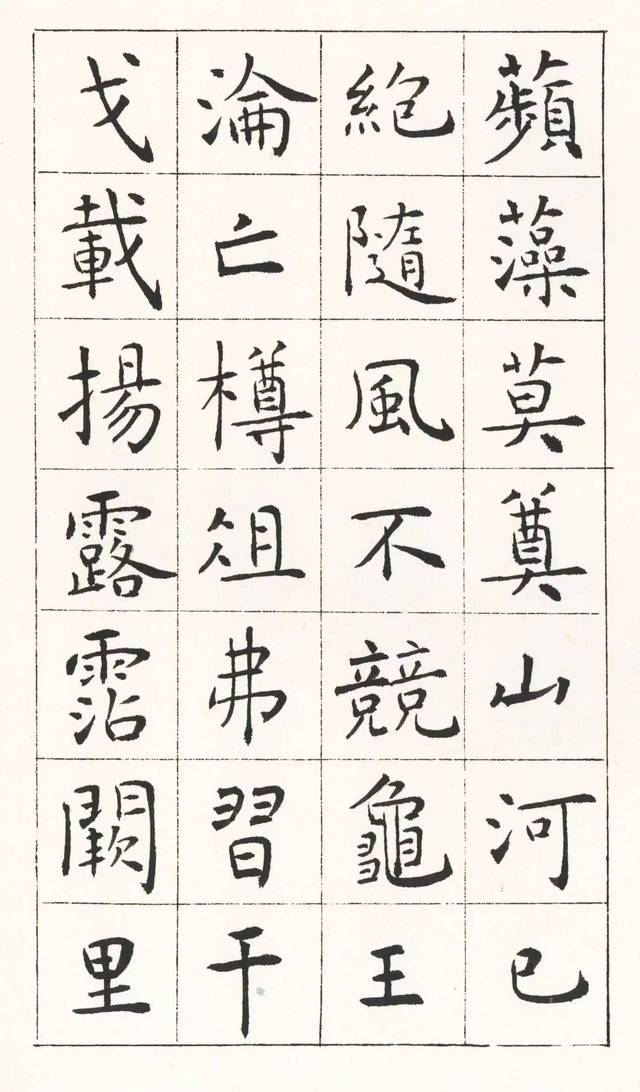 蘋藻莫奠山河已
絶隨風不競龜王
淪亡樽俎弗習干
戈載揚露霑闕里